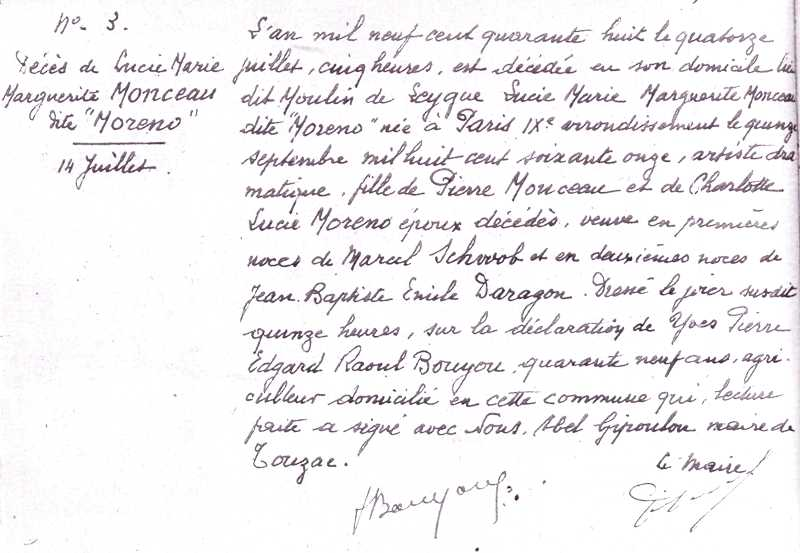 N° 3.
Décès de Lucie Marie
Marguerite Monceau
dite "Moreno"
14 Juillet.
L'an mil neuf cent quarante huit le quatorze
juillet, cinq heures, est décédée en son domicile lieu
dit Moulin de Leygue Lucie Marie Marguerite Monceau
dite "Moreno" née à Paris IXe arrondissement le quinze
septembre mil huit cent soixante onze, artiste dra
matique, fille de Pierre Monceau et de Charlotte
Lucie Moreno époux décédés, veuve en premières
noces de Marcel Schwob et en deuxièmes noces de
Jean Baptiste Emile Daragon. Dressé le jour susdit
quinze heures, sur la déclaration de Yves Pierre
Edgard Raoul Bouyou, quarante neuf ans, agri-
culteur domicilié en cette commune qui, lecture
faite a signé avec Nous, Abel Giroulou maire de
Touzac.
Le Maire